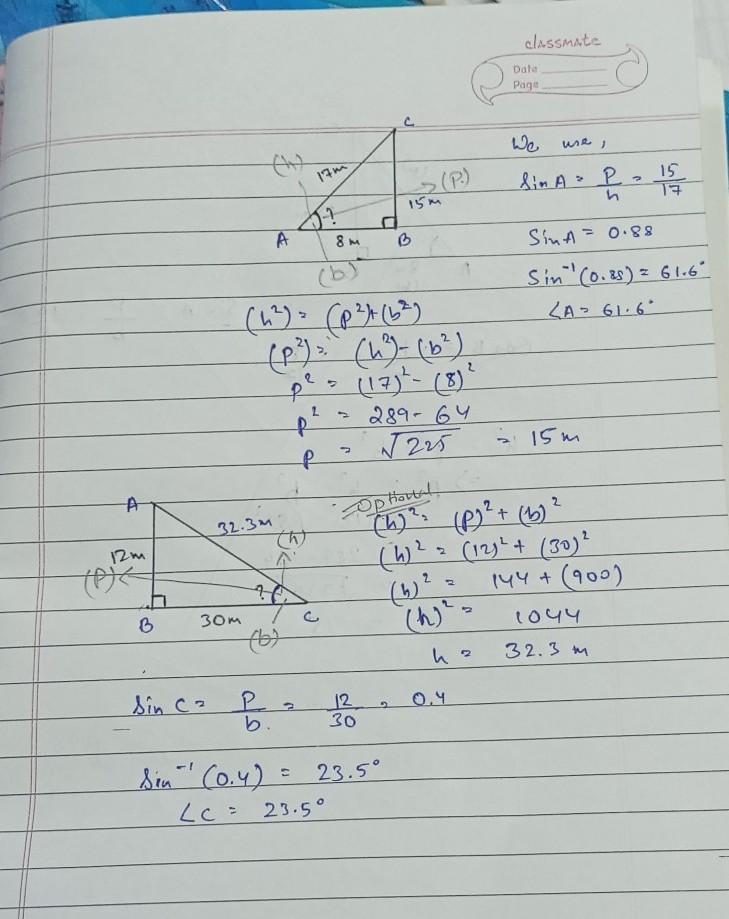 classmate
Date
Page
C
(h)
17m
(P)
15m
?
A
8m
B
(b)
We use,
Sin A = P/h = 15/17
Sin A = 0.88
Sin⁻¹(0.88) = 61.6°
∠A = 61.6°
(h²) = (P²)+(b²)
(P²) = (h²)-(b²)
P² = (17)² - (8)²
P² = 289 - 64
P = √225 = 15m
A
32.3m
(h)
12m
(P)
?
B
30m
C
(b)
Optional
(h)² = (P)² + (b)²
(h)² = (12)² + (30)²
(h)² = 144 + (900)
(h)² = 1044
h = 32.3 m
Sin C = P/b. = 12/30 = 0.4
Sin⁻¹(0.4) = 23.5°
∠C = 23.5°